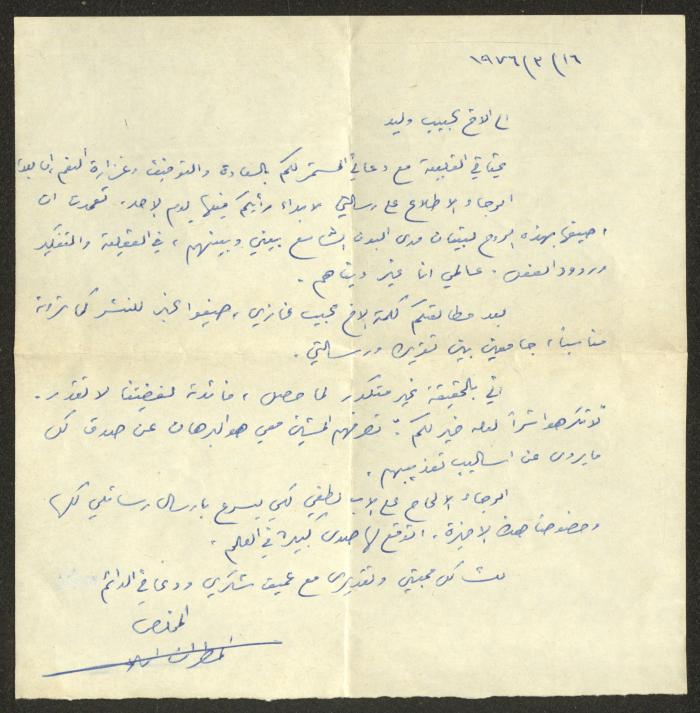 ١٦/٣/١٩٧٦
الى الاخ الحبيب وليد
تحياتي القلبية مع دعائي المستمر لكم بالسعادة والتوفيق وغزارة النعم، اما بعد
الرجاء الاطلاع على رسالتي لابداء رأيكم فيها يوم الاحد. تعمدت ان
اصيغها بهذه الروح لتبيان مدى البون الشاسع بيني وبينهم، في العقلية والتفكير
وردود الفعل. عالمي انا غير دنياهم.
بعد مطالعتكم كلمة الاخ الحبيب غازي، صيغوا الخبر للنشر كما ترونه
مناسباً، جامعين بين تقريره ورسالتي.
اني بالحقيقة غير متكدر لما حصل، فائدة لقضيتنا لا تقدر.
"لا تكرهوا شراً لعله خير لكم". تصرفهم المشين معي هو البرهان عن صدق كل
ما يروى عن اساليب تعذيبهم.
الرجاء الالحاح على الاب لطفي لكي يسرع بارسال رسائلي كلها
وخصوصاً هذه الاخيرة. اتوقع لها صدى كبيراً في العالم.
لك كل محبتي وتقديري مع عميق شكري ودعائي الدائم
المخلص
المطران